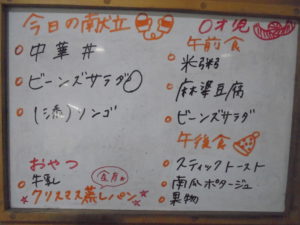 今日の献立
中華丼
ビーンズサラダ
(添)リンゴ
おやつ
牛乳
全月
クリスマス蒸しパン
0才児
午前食
米粥
麻婆豆腐
ビーンズサラダ
午後食
スティックトースト
南瓜ポタージュ
果物